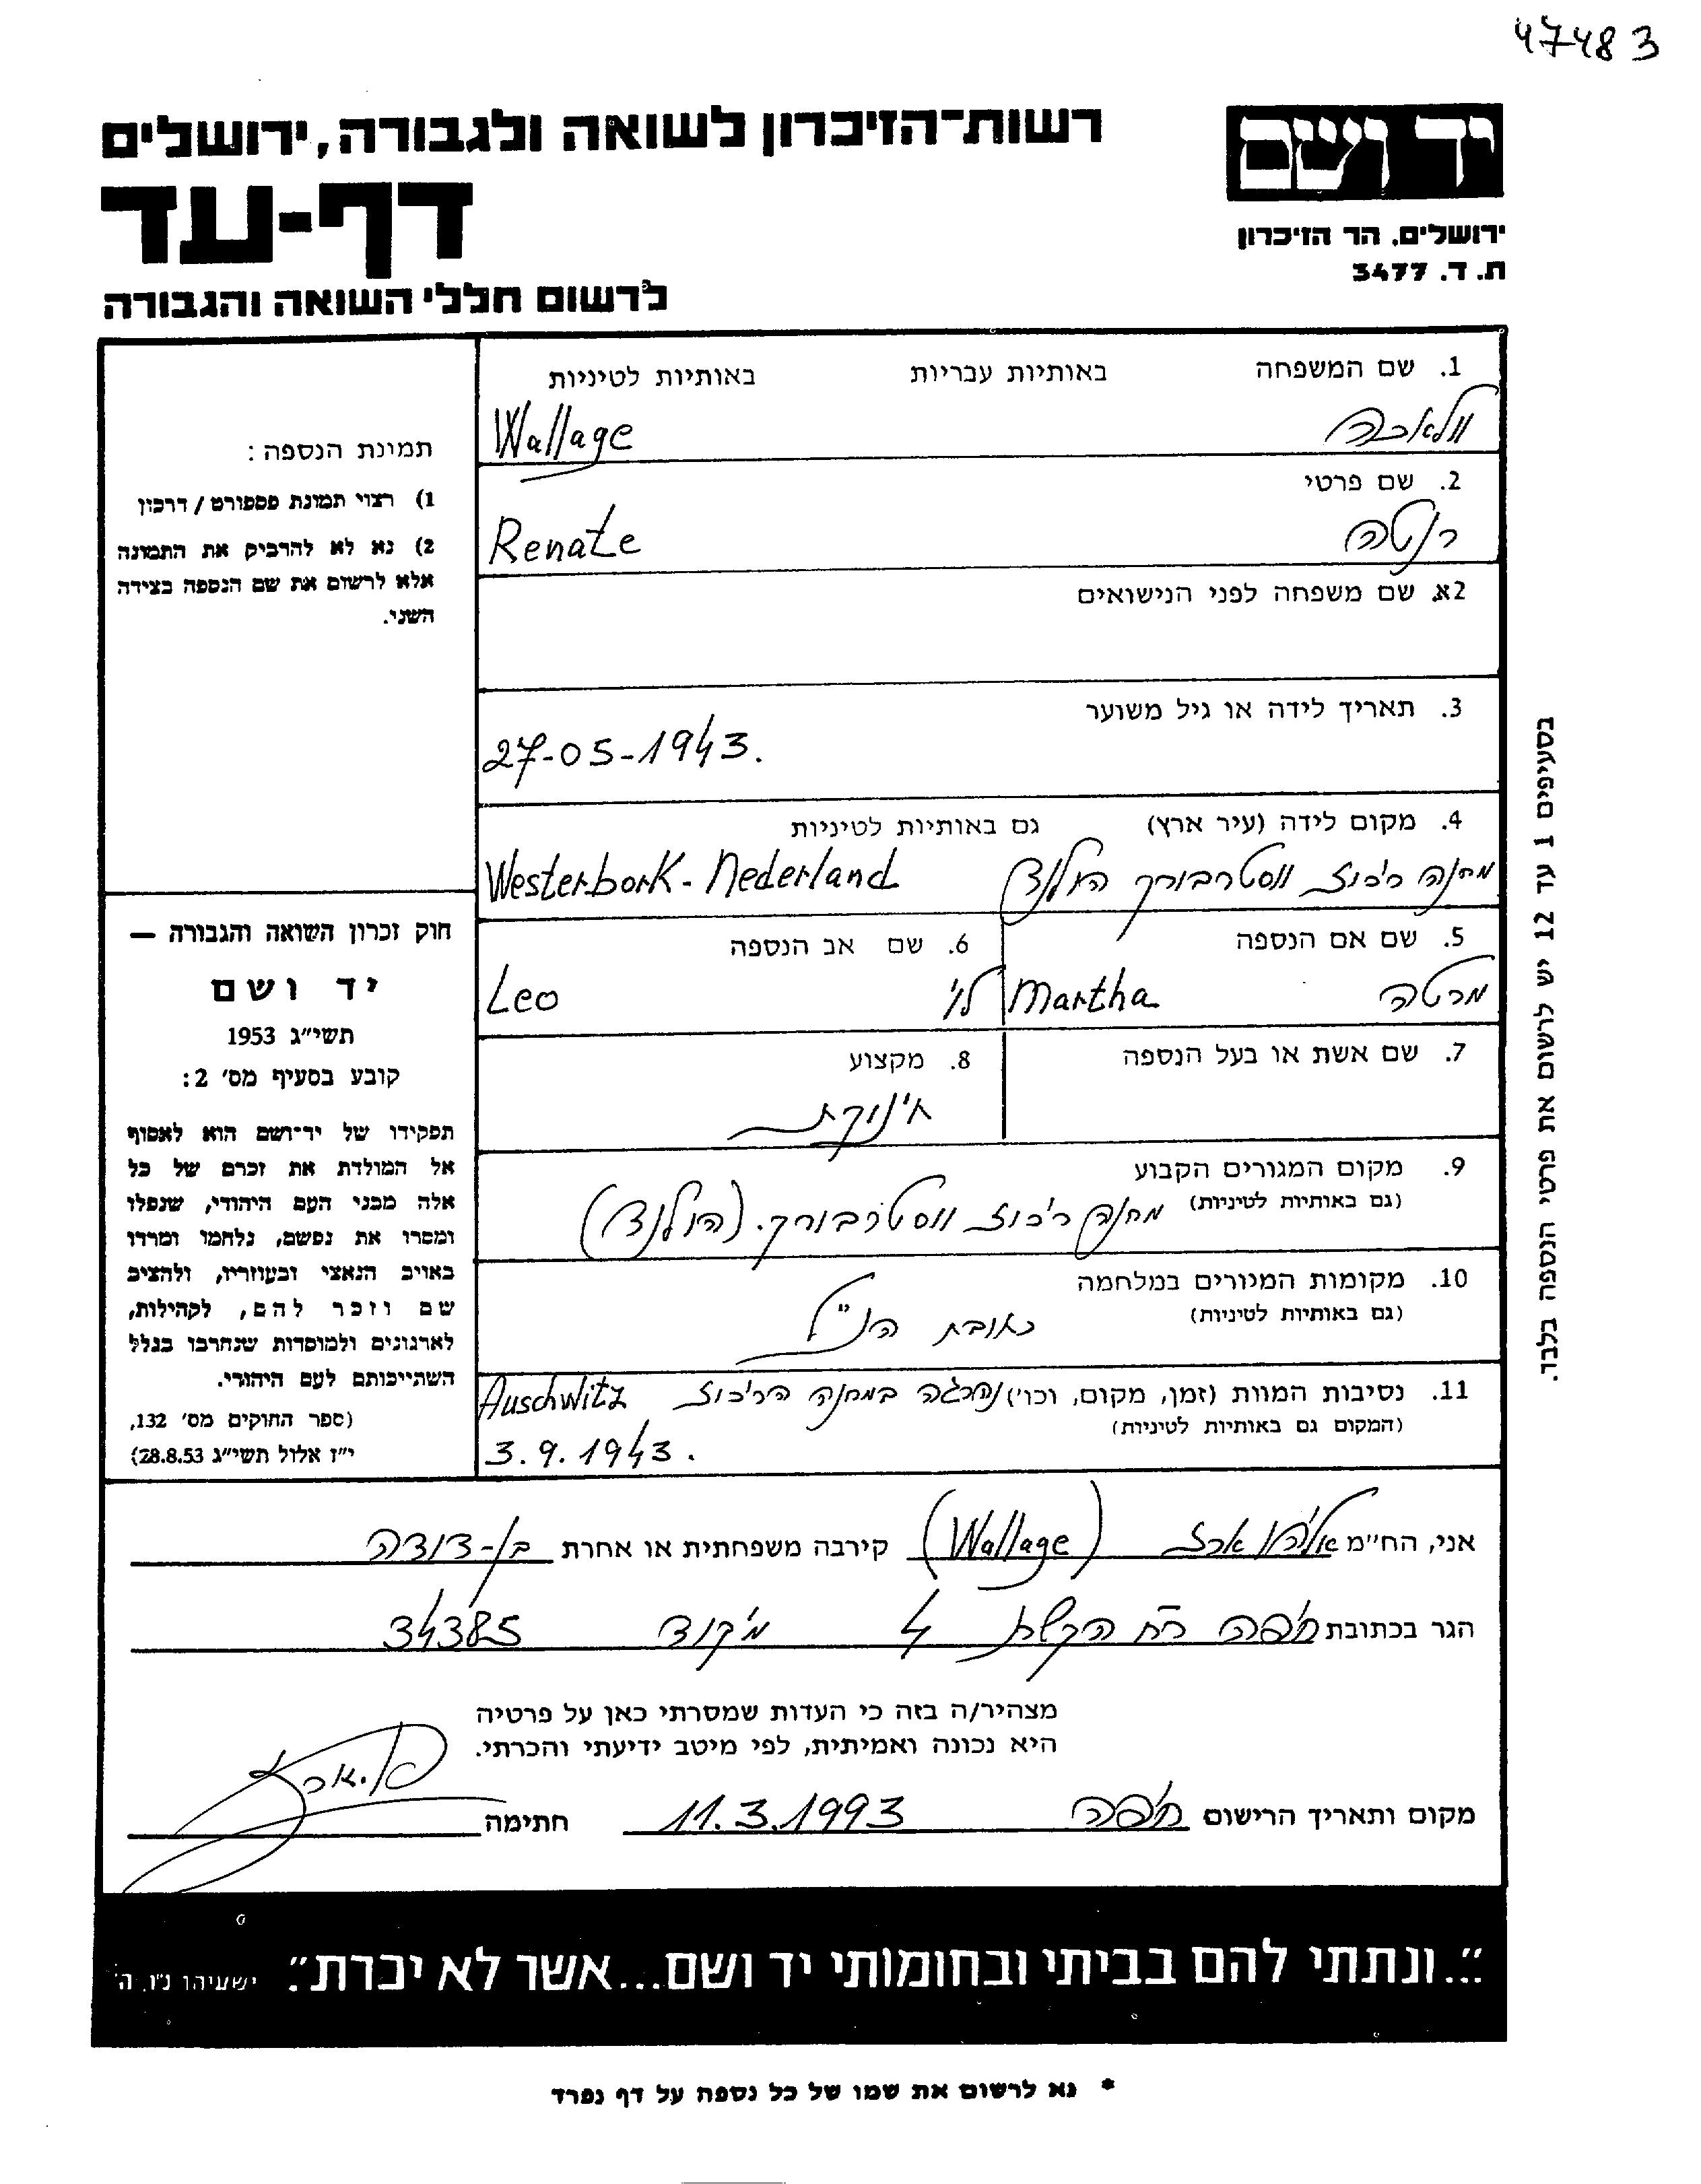 47483
רשות-הזיכרון לשואה ולגבורה, ירושלים
דף-עד
לרשום חללי השואה והגבורה
יד ושם
ירושלים, הר הזיכרון
ת. ד. 3477
1. שם המשפחה באותיות עבריות באותיות לטיניות
Wallage
2. שם פרטי
רנטה Renate
2א. שם משפחה לפני הנישואים
3. תאריך לידה או גיל משוער
27-05-1943.
4. מקום לידה (עיר ארץ) גם באותיות לטיניות
מחנה ריכוז ווסטרבורק הולנד Westerbork - Nederland
5. שם אם הנספה
מרטה Martha
6. שם אב הנספה
Leo
7. שם אשת או בעל הנספה
8. מקצוע
תינוקת
9. מקום המגורים הקבוע
(גם באותיות לטיניות) מחנה ריכוז ווסטרבורק. (הולנד)
10. מקומות המגורים במלחמה
(גם באותיות לטיניות) כתובת הנ"ל
11. נסיבות המוות (זמן, מקום, וכו') נהרגה במחנה הריכוז Auschwitz
(המקום גם באותיות לטיניות) 3.9.1943.
תמונת הנספה:
1) רצוי תמונת פספורט / דרכון
2) נא לא להדביק את התמונה
אלא לרשום את שם הנספה בצידה
השני.
חוק זכרון השואה והגבורה —
יד ושם
תשי״ג 1953
קובע בסעיף מס׳ 2:
תפקידו של יד־ושם הוא לאסוף
אל המולדת את זכרם של כל
אלה מבני העם היהודי, שנפלו
ומסרו את נפשם, נלחמו ומרדו
באויב הנאצי ובעוזריו, ולהציב
שם וזכר להם, לקהילות,
לארגונים ולמוסדות שנחרבו בגלל
השתייכותם לעם היהודי.
(ספר החוקים מס׳ 132,
י״ז אלול תשי״ג 28.8.53)
בסעיפים 1 עד 12 יש לרשום את פרטי הנספה בלבד.
אני, הח״מ אליהו ארז (Wallage) קירבה משפחתית או אחרת בן-דודה
הגר בכתובת חיפה רח' הקשת 4 מיקוד 34385
מצהיר/ה בזה כי העדות שמסרתי כאן על פרטיה
היא נכונה ואמיתית, לפי מיטב ידיעתי והכרתי.
מקום ותאריך הרישום חיפה 11.3.1993 חתימה
״...ונתתי להם בביתי ובחומותי יד ושם...אשר לא יכרת״. ישעיהו נ״ו, ה׳
* נא לרשום את שמו של כל נספה על דף נפרד